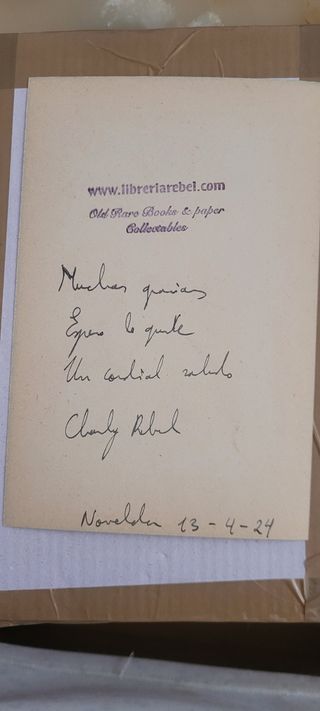 www.libreriarebel.com
Old Rare Books & paper
Collectables
Muchas gracias
Espero le guste
Un cordial saludo
Charly Rebel
Novelda 13-4-24